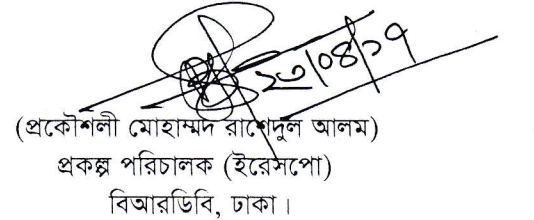 ২৩/০৪/১৭
(প্রকৌশলী মোহাম্মদ রাশেদুল আলম)
প্রকল্প পরিচালক (ইরেসপো)
বিআরডিবি, ঢাকা।